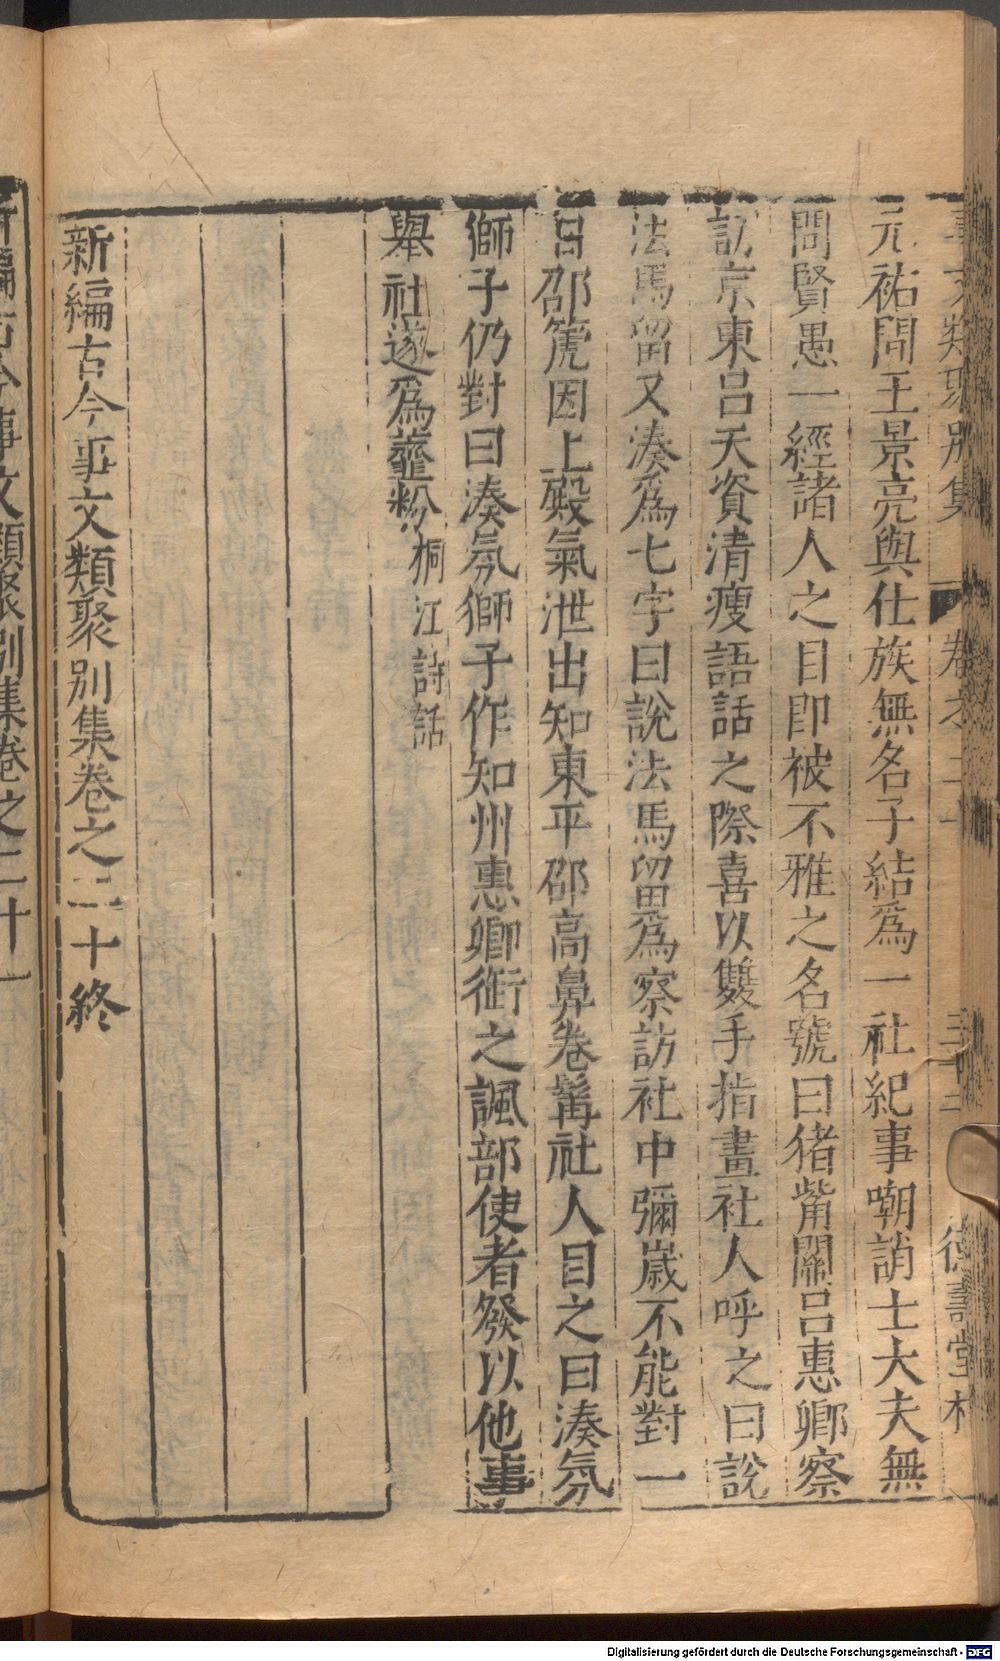 事文類聚別集 卷之二十 三十三 德壽堂梓
元祐間王景亮與仕族無名子結爲一社紀事嘲誚士大夫無
問賢愚一經諸人之目即被不雅之名號曰猪觜關吕惠卿察
訪京東吕天資清瘦語話之際喜以雙手指畫社人呼之曰說
法馬留又湊爲七字曰說法馬留爲察訪社中彌歲不能對一
日邵箎因上殿氣泄出知東平邵高鼻卷髯社人目之曰湊氛
獅子仍對曰湊氛獅子作知州惠卿銜之諷部使者發以他事
舉社遂爲虀粉桐江詩話
新編古今事文類聚別集卷之二十終
新編古今事文類聚別集卷之二十一
Digitalisierung gefördert durch die Deutsche Forschungsgemeinschaft - DFG